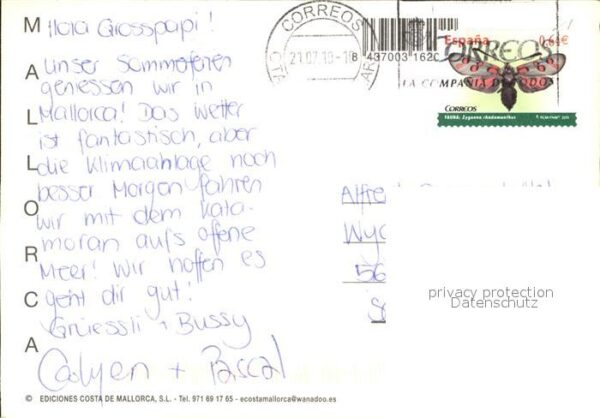 MALLORCA
Hola Grosspapi!
Unser Sommerferien
geniessen wir in
Mallorca! Das Wetter
ist fantastisch, aber
die Klimaanlage noch
besser Morgen fahren
wir mit dem Kata-
moran aufs offene
Meer! Wir hoffen es
geht dir gut!
Grüessli + Bussy
+ Pascal
CORREOS
21.07.10-18
437003 162
España 0,64€
CORREOS
LA COMPAÑIA DE TODOS
CORREOS
FAUNA: Zygaena rhadamanthus
Alfre
Wyc
56
privacy protection
Datenschutz
© EDICIONES COSTA DE MALLORCA, S.L. - Tel. 971 69 17 65 - ecostamallorca@wanadoo.es